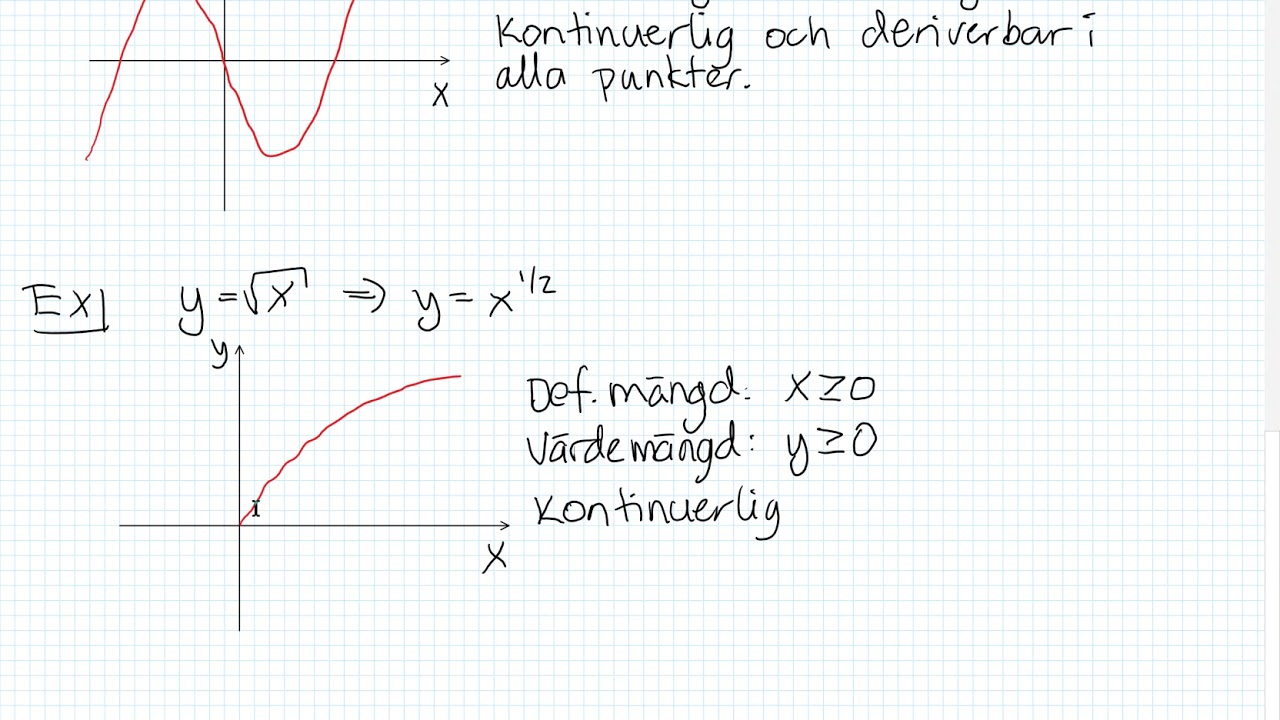 Kontinuerlig och deriverbar i
alla punkter.
x
Ex
y = √x ⇒ y = x^1/2
y
Def. mängd: x ≥ 0
Värdemängd: y ≥ 0
Kontinuerlig
x